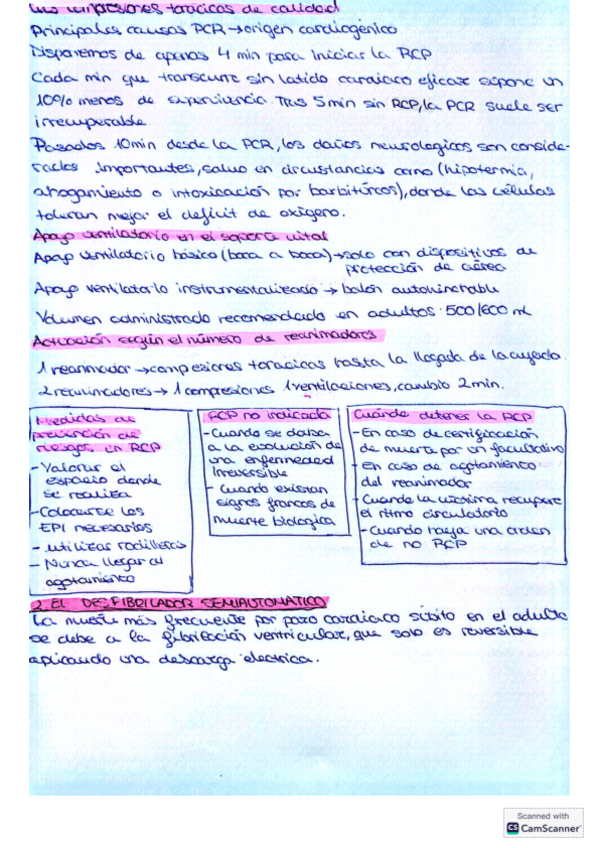 Las compresiones torácicas de calidad
Principales causas PCR → origen cardiogénico
Disponemos de apenas 4 min para iniciar la RCP
Cada min que transcurre sin latido cardiaco eficaz supone un
10% menos de supervivencia. Tras 5min sin RCP, la PCR suele ser
irrecuperable.
Pasados 10min desde la PCR, los daños neurologicos son conside-
rados importantes, salvo en circustancias como (hipotermia,
ahogamiento o intoxicación por barbitúricos), donde las células
toleran mejor el deficit de oxígeno.
Apoyo ventilatorio en el soporte vital
Apoyo ventilatorio básico (boca a boca) → solo con dispositivos de
protección de aérea
Apoyo ventilatorio instrumentalizado → balón autohinchable
Volumen administrado recomendado en adultos 500/600 ml
Actuación según el número de reanimadores
1 reanimador → compesiones toracicas hasta la llegada de la ayuda.
2 reanimadores → 1 compresiones 1 ventilaciones, cambio 2min.
Medidas de
prevención de
riesgos en RCP
- Valorar el
espacio donde
se realiza
- Colocarse los
EPI necesarios
- utilizar rodilleras
- Nunca llegar al
agotamiento
RCP no indicada
- Cuando se deba
a la evolución de
una enfermedad
irreversible
- Cuando existan
signos francos de
muerte biologica
Cuándo detener la RCP
- En caso de certificación
de muerte por un facultativo
- En caso de agotamiento
del reanimador
- Cuando la víctima recupere
el ritmo circulatorio
- Cuando haya una orden
de no RCP
2. EL DESFIBRILADOR SEMIAUTOMATICO
La muerte más frecuente por paro cardiaco súbito en el adulto
se debe a la fibrilación ventricular, que solo es reversible
aplicando una descarga electrica.
Scanned with
CS CamScanner